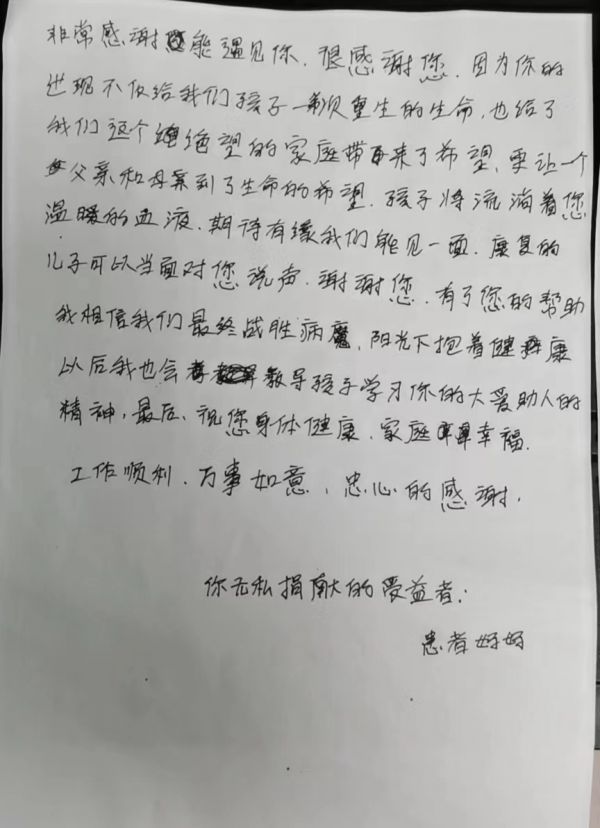 非常感谢能遇见你.很感谢您.因为你的
出现不仅给我们孩子一颗重生的生命,也给了
我们这个绝望的家庭带来了希望,更让一个
父亲和母亲到了生命的希望.孩子将流淌着您
温暖的血液.期待有缘我们能见一面.康复的
儿子可以当面对您说声.谢谢您.有了您的帮助
我相信我们最终战胜病魔,阳光下抱着健康
以后我也会教导孩子学习你的大爱助人的
精神,最后、祝您身体健康.家庭幸福.
工作顺利.万事如意,忠心的感谢.
你无私捐献的受益者:
患者妈妈